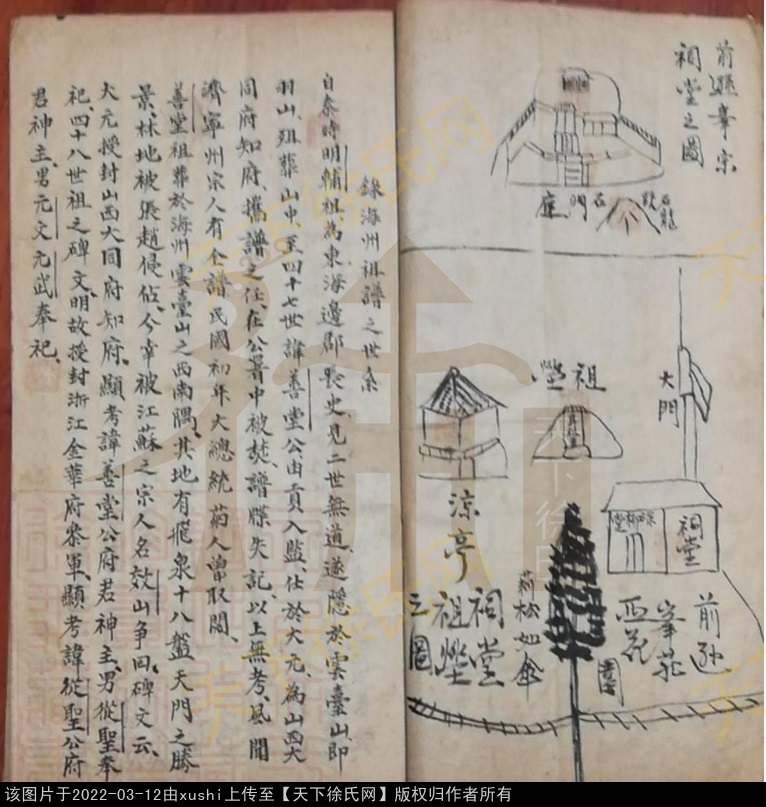 前遜峯宗
祠堂之圖
石門
庭
大門
祖塋
涼亭
祠堂
前遜
峯菴
西菴
古松如傘
祠堂
祖塋
之圖
錄海州祖譜之世系
自秦時明輔祖、為東海邊郡史見二世無道、遂隱於雲臺山、即
羽山、殂葬山中、至四十七世諱善堂公由貢入監、仕於大元、為山西大
同府知府、攜譜之任、在公署中被焚、譜牒失記、以上無考、風聞
濟寧州宗人有全譜、民國初年大總統菊人曾取閱、
善堂祖葬於海州雲臺山之西南隅、其地有飛泉十八盤天門之勝
景、林地被張趙侵佔、今幸被江蘇之宗人名效山爭回、碑文云、
大元授封山西大同府知府、顯考諱善堂公府君神主、男從聖奉
祀、四十八世祖之碑文、明故授封浙江金華府參軍、顯考諱從聖公府
君神主、男元文元武奉祀、
该图片于2022-03-12由xushi上传至【天下徐氏网】版权归作者所有